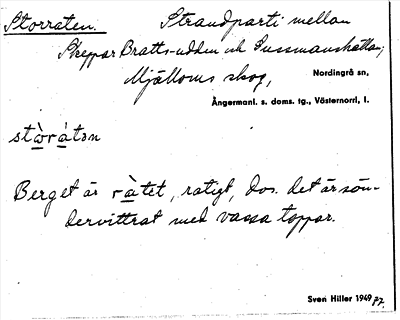 Storraten. Strandparti mellan
Skeppar Bratts-udden och Sussmanshällan,
Mjälloms skog, Nordingrå sn,
Ångermanl. s. doms. tg., Västernorrl, l.
stòràtən
Berget är ràtet, ratigt, dvs. det är sön-
dervittrat med vassa toppar.
Sven Hiller 1949